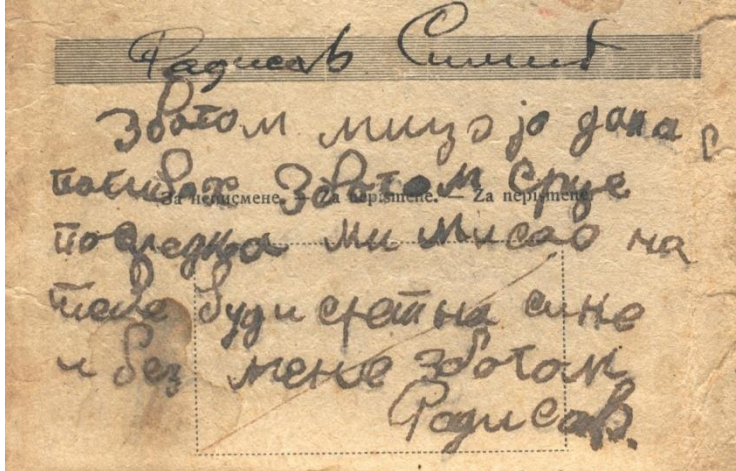 Радисав Симић
Збогом мицо ја данас
погибох Збогом Срце
За неписмене. — Za nepismene. — Za nepismene.
последња ми мисао на
тебе буди сретна сине
и без мене збогом
Радисав.